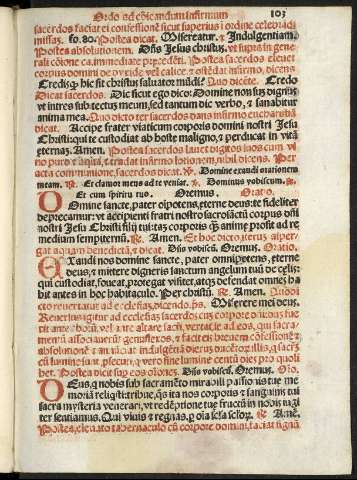 Ordo ad cōicandum infirmum 103
sacerdos faciat ei confessionē sicut superius i ordine celebrādi
missas. fo. 80. Postea dicat. Misereatur. & Indulgentiam.
Postea absolutionem. Dñs Jesus christus. ut supra in gene
rali cōione ca. immediate precedēti. Postea sacerdos eleuet
corpus domini de pyxide vel calice. & ostēdat infirmo, dicens
Credisq; hic sit christus saluator mūdi? Quo dicēte. Credo
Dicat sacerdos. Dic sicut ego dico: Domine non suz dignus
vt intres sub tectus meum, sed tantum dic verbo, & sanabitur
anima mea. Quo dicto ter sacerdos dans infirmo eucharistiā
dicat. Accipe frater viaticum corporis domini nostri Jesu
Christi: qui te custodiat ab hoste maligno, & perducat in vitā
eternaz. Amen. Postea sacerdos lauet digitos suos cum vi
no puro & aqua, & tradat infirmo lotionem, nihil dicens. Per
acta communione, sacerdos dicat. ℣. Domine exaudi orationem
meam. ℟. Et clamor meus ad te veniat. ℣. Dominus vobiscum. ℟.
Et cum spiritu tuo. Oremus. Oratio.
DOmine sancte, pater oīpotens, eterne deus: te fideliter
deprecamur: vt accipienti fratri nostro sacrosāctū corpus dñi
nostri Jesu Christi filij tui: tāz corporis q̄ anime prosit ad re
medium sempiternū. ℟. Amen. Et hoc dicto, iterus asper-
gat aquam benedictā, & dicat. Dñs vobiscū. Oremus. Oratio.
EXaudi nos domine sancte, pater omnipotens, eterne
deus, & mittere digneris sanctum angelum tuū de celis:
qui custodiat, foueat, protegat, visitet, atqz defendat omnes ha
bitantes in hoc habitaculo. Per christū. ℟. Amen.
cto reuertatur ad ecclesiaz, dicendo. ps. Miserere mei deus.
Reuersus igitur ad ecclesiaz sacerdos cuz corpore
tit ante vel ante altare sacri, vertat se ad eos, qui sacra-
mentū associauerūt genuflexos, & facit eis breuem cōfessionē &
absolutionē & nūciat indulgētiā dictus ducētor dies, q̄ sacrū
cū lumine sunt psecuti, q̄ vero sine lumine centū dies pro quoli
bet. Postea dicit sup eos oīones. Dñs vobiscū. Oremus. Oīo.
DEus, q nobis sub sacramēto mirabili passionis tue me
moriā reliqsti: tribue, q̄s ita nos corporis & sanguinis tui
sacra mysteria venerari, vt redēptiōis tue fructū in nobis iugi
ter sentiamus. Qui viuis & regnas, p oīa secla seclorz. ℟. Amē.
Postea, eleuato tabernaculo cū corpore dñi, faciat signū